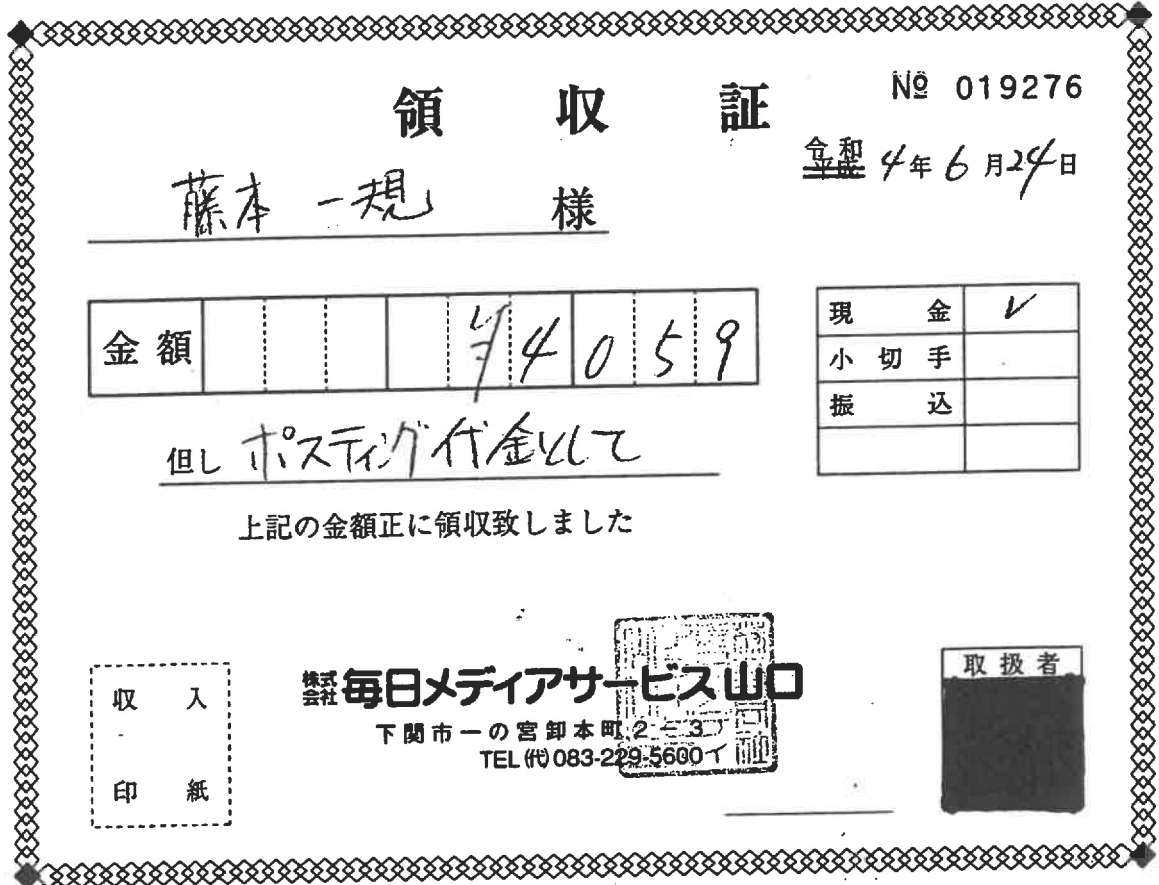 領収証
№ 019276
令和
平成 4年6月24日
藤本 一規 様
金額 ¥4059
現金 レ
小切手
振込
但し ポスティング代金として
上記の金額正に領収致しました
収入
印紙
株式会社 毎日メディアサービス山口
下関市一の宮卸本町2-3
TEL(代)083-229-5600
取扱者